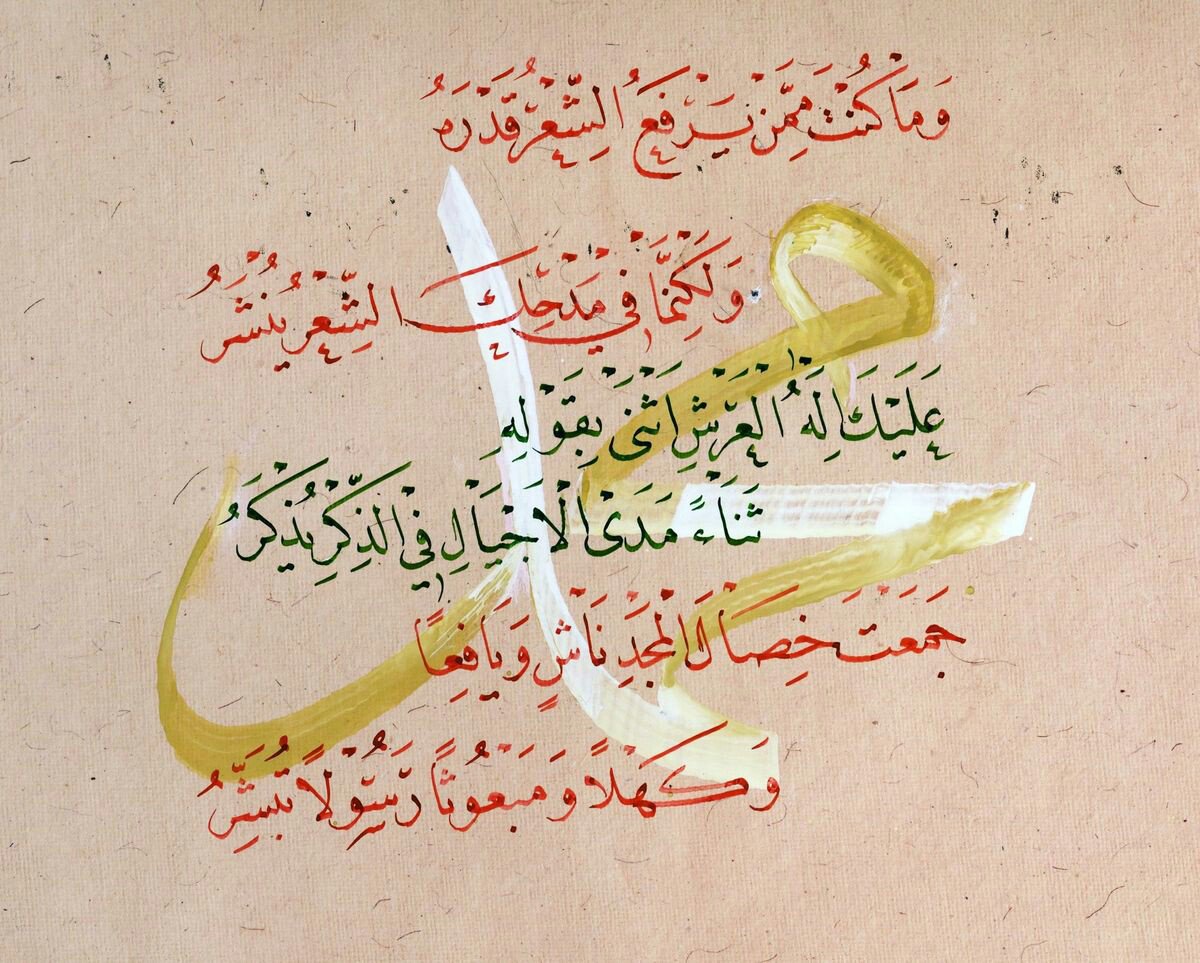 وَمَا كُنْتُ مِمَّنْ يَرْفَعُ الشِّعْرُ قَدْرَهُ
وَلَكِنَّمَا فِي مَدْحِكَ الشِّعْرُ يُنْشَرُ
عَلَيْكَ إِلَهُ الْعَرْشِ اثْنَى بِقَوْلِهِ
ثَنَاءً مَدَى الْاَجْيَالِ فِي الذِّكْرِ يُذْكَرُ
جَمَعْتَ خِصَالَ الْمَجْدِ نَاشٍ وَيَافِعًا
وَكَهْلًا وَمَبْعُوثًا رَسُوْلًا تُبَشِّرُ